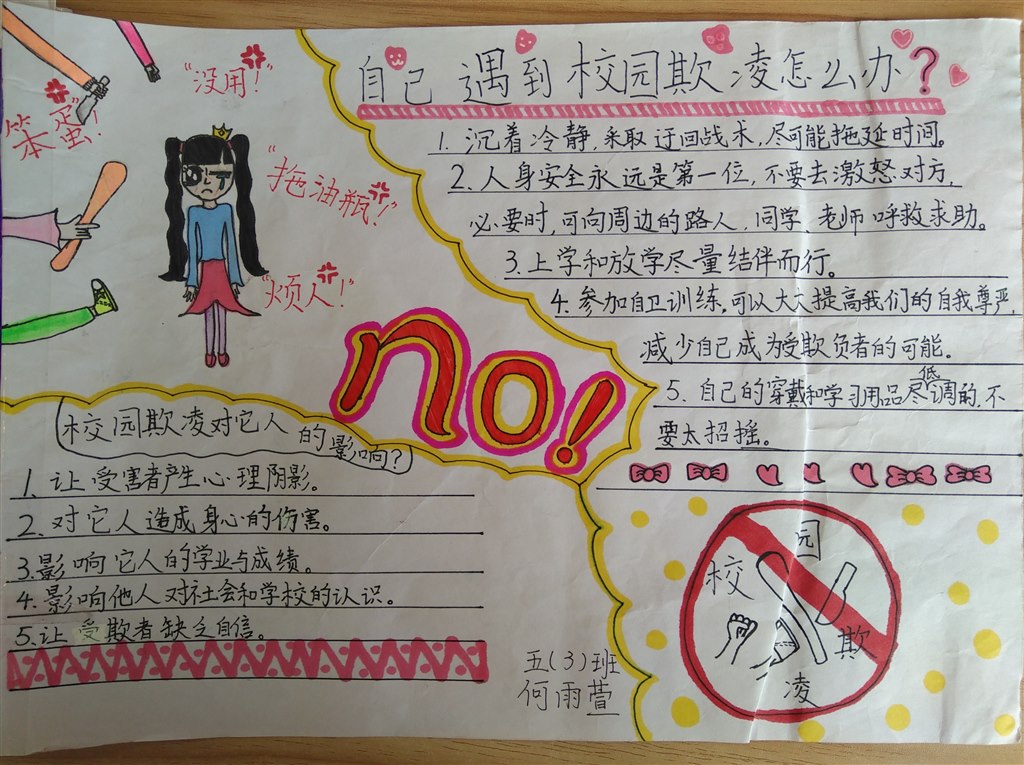 自己遇到校园欺凌怎么办?
1. 沉着冷静,采取迂回战术,尽可能拖延时间。
2. 人身安全永远是第一位,不要去激怒对方,
必要时,可向周边的路人,同学、老师呼救求助。
3. 上学和放学尽量结伴而行。
4. 参加自卫训练,可以大大提高我们的自我尊严,
减少自己成为受欺负者的可能。
5. 自己的穿戴和学习用品尽低调的,不
要太招摇。
"没用!"
笨蛋!
"拖油瓶!"
"烦人!"
no!
校园欺凌对它人的影响?
1. 让受害者产生心理阴影。
2. 对它人造成身心的伤害。
3. 影响它人的学业与成绩。
4. 影响他人对社会和学校的认识。
5. 让受欺者缺乏自信。
五(3)班
何雨萱
校园
欺凌